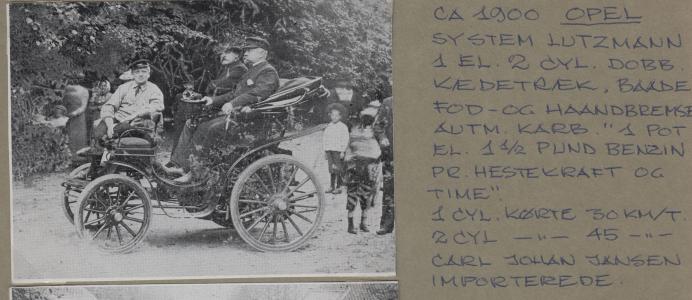 CA 1900 OPEL
SYSTEM LUTZMANN
1 EL. 2 CYL. DOBB.
KÆDETRÆK, BAADE
FOD-OG HAANDBREMSE
AUTM. KARB. "1 POT
EL. 1 1/2 PUND BENZIN
PR. HESTEKRAFT OG
TIME".
1 CYL. KØRTE 30 KM/T.
2 CYL -"- 45 -"-
CARL JOHAN JANSEN
IMPORTEREDE.